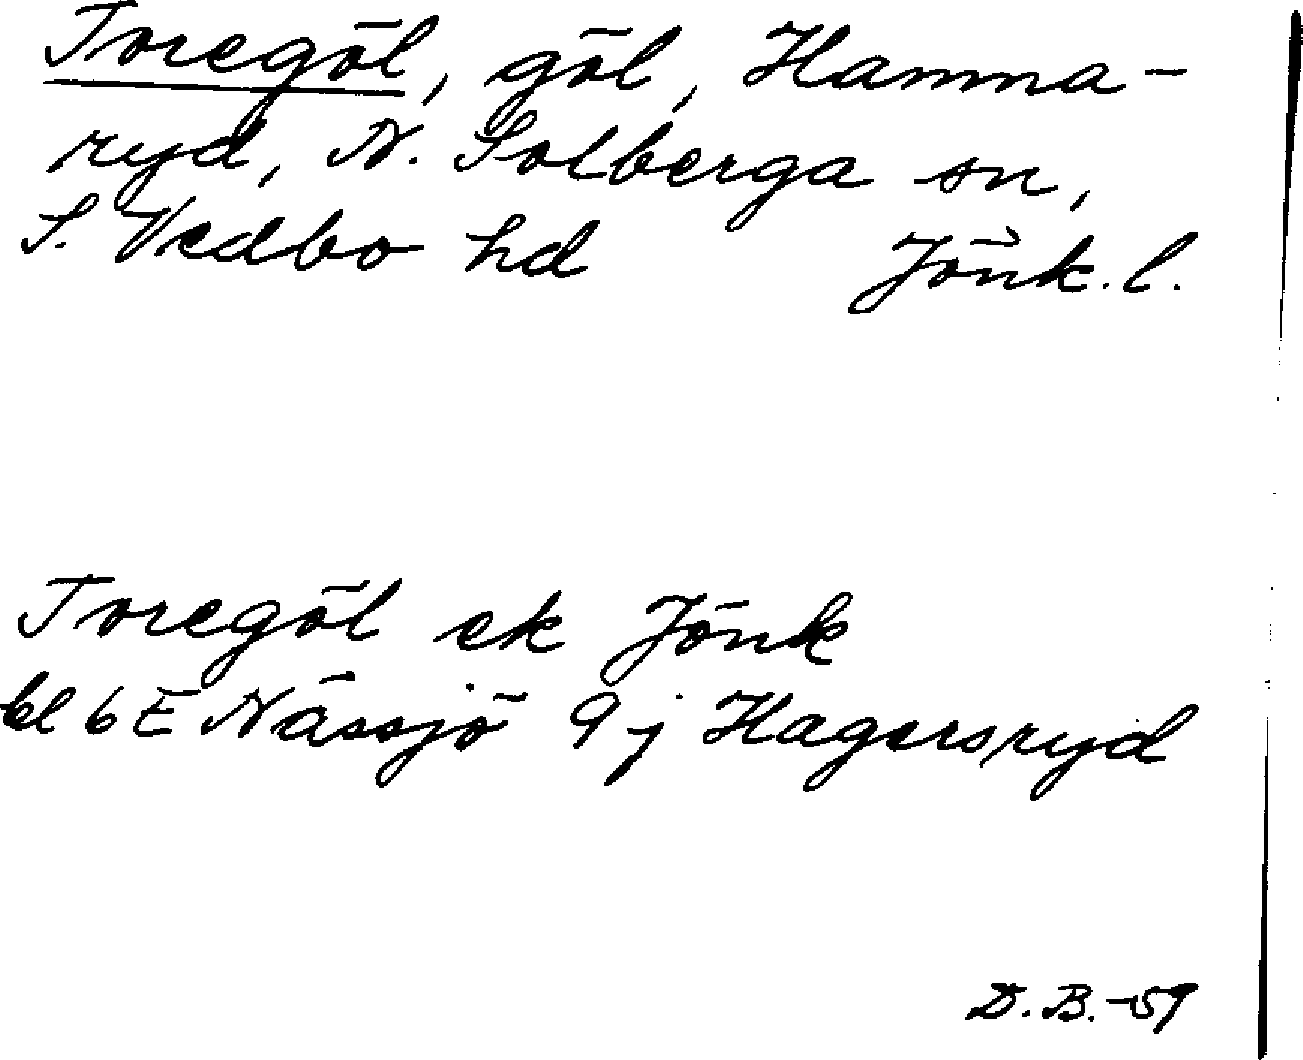 Toregöl, göl, Hamma-
ryd, N. Solberga sn,
S. Vedbo hd Jönk. l.
Toregöl ek Jönk
bl 6 E Nässjö 9 j Hagersryd
D. B. -59